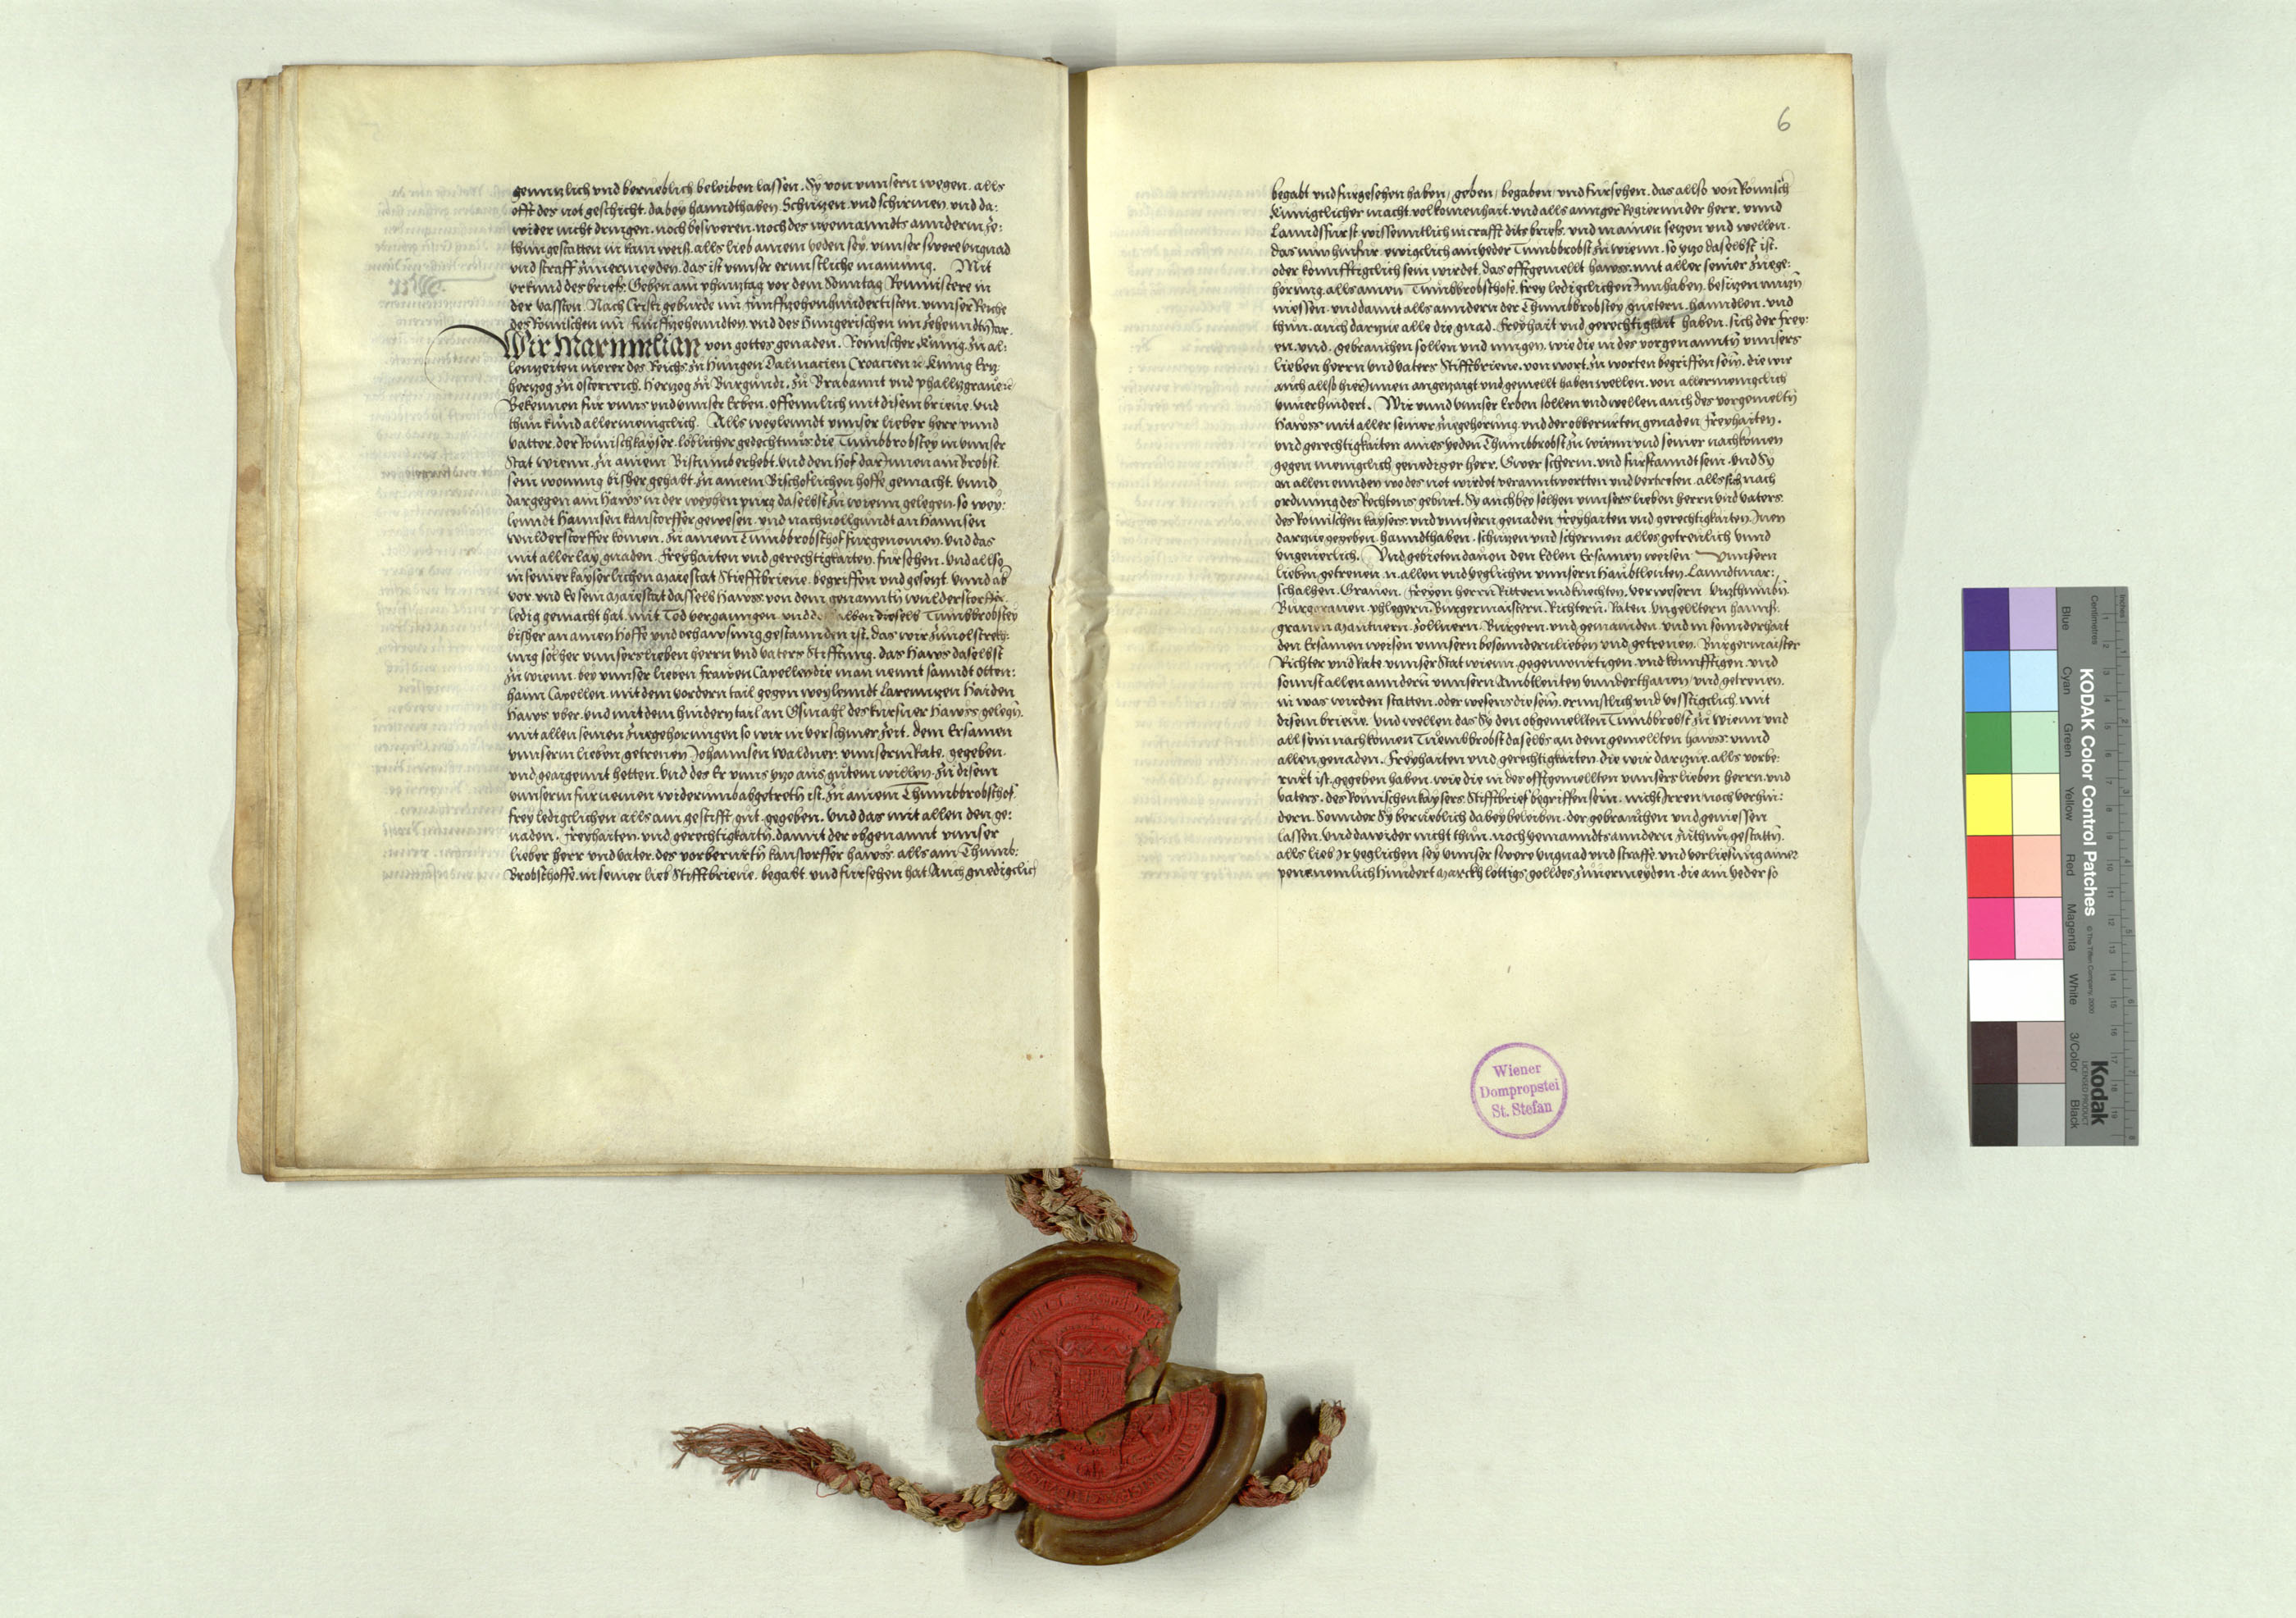 genntzlich vnd berueblich beleiben lassen. Sy von vnnsern wegen. alls
offt des not geschicht. dabey hanndthaben. Schutzen. vnd schirmen. vnd da:
wider nicht dringen. noch besweren. noch des nyemanndts anndern ze:
thun gestatten in kain weiß. alls lieb ainem yeden sey. vnnser swere vngnad
vnd straff zuuermeyden. das ist vnnser ernnstliche mainung. Mit
vrkund des briefs. Geben am phintztag vor dem Sonntag Reministere in
der vassten. Nach Cristi geburde im funffzehenhundertisten. vnnser Reiche
des Romischen im funffzehenndten. vnd des Hungerischen im zehenndtn Jar.
Wir Maximilian von gottes genaden. Romischer Kunig. zu al:
lenntzeiten merer des Reichs. zu Hungern Dalmacien Croacien ꝛc Kunig Ertz
hertzog zu osterreich. Hertzog zu Burgundi. zu Brabannt vnd phalltzgraue ꝛc
Bekennen fur vnns vnd vnnser Erben. offennlich mit disem brieue. vnd
thun kund allermenigclich. Alls weylenndt vnnser lieber herr vnnd
vatter. der Romisch kayser. loblicher gedechtnus. die Tumbbrobstey in vnnser
Stat wienn. zu ainem Bistumb erhebt. vnd den Hof darInnen ain Brobst
sein wonung bisher gehabt. zu ainem Bischoflichen hoffe gemacht. vnnd
dargegen ain Haws in der weyhenpurg daselbst zu wienn gelegen. so wey:
lenndt Hannsen kanstorffer gewesen. vnd nachuollgundt an Hannsen
wulderstorffer komen. zu ainem Tumbbrobsthof furgenomen. vnd das
mit aller lay gnaden. freyhaiten vnd gerechtigkaiten. fursehen. vnd allso
in seiner kayserlichen Maiestat Stifftbrieue. begriffen vnd gesetzt. vnnd ab
vor vnd Ee sein Maiestat dasselb Hawss. von dem genanntn wulderstorffer
ledig gemacht hat. mit Tod verganngen. vnd dieselb Tumbbrobstey
bisher an ainen hoffe vnd behawsung gestannden ist. das wir zu uolstreckh:
ung solher vnnsers lieben herrn vnd vaters Stifftung. das Haws daselbst
zu wienn. bey vnnser lieben frawen Capellen die man nennt sanndt Otten:
haim Capellen. mit dem vordern tail gegen weylenndt Larenntzen Haiden
Haws vber. vnd mit dem hindern tail an Gsmachl des kursner Hawss gelegn.
mit allen seinen zuegehorungen so wir in verschiner zeit. dem Ersamen
vnnserm lieben. getreuen Johannsen waldner. vnnserm Rate. gegeben.
vnd geaigennt hetten. vnd des Er vnns yetzo aus gutem willen. zu disem
vnnserm furnemen widerumb abgetretn ist. zu ainem Thumbbrobsthof.
frey ledigclichen alls ain gestifft gut. gegeben. vnd das mit allen den ge:
naden. freyhaiten. vnd gerechtigkaitn. damit der obgenannt vnnser
lieber herr vnd vater. des vorberurtn kanstorffer hawss. alls ain Thumb:
Brobsthoffe. in seiner lieb Stifftbrieue. begabt. vnd fursehen hat. Auch gnedigclich
6
begabt vnd furgesehen haben / geben / begaben / vnd fursehen. das allso von Romisch
Kunigclicher macht. volkomenhait. vnd alls ainiger Regierunder herr. vnnd
Lanndsfurst wissenntlich in crafft dits briefs. vnd mainen setzen vnd wellen.
das nw hinfur ewigclich ain yeder Tumbbrobst zu wienn. so yetzo daselbst ist.
oder konnfftigclich sein wirdet. das offtgemellt hawss. mit aller seiner zuege:
horung. alls ainen Tumbbrobsthofe. frey ledigclichen Innhaben. besitzen nutzn
niessen. vnd damit alls anndern der Thumbbrobstey guetern. hanndlen. vnd
thun. auch dartzue alle die gnad. freyhait vnd gerechtigkait haben. sich der frey:
en. vnd. gebrauchen sollen vnd mugen. wie die in des vorgenanntn vnnsers
lieben herrn vnd vaters Stifftbrieue. von wort. zu worten begriffen sein. die wir
auch allso hierInnen angetzaigt vnd gemellt haben wellen. von allermenigclich
vnnerhindert. Wir vnnd vnnser Erben sollen vnd wellen auch des vorgemeltn
Hawss. mit aller seiner zuegehorung. vnd der obberurten genaden. freyhaiten.
vnd gerechtigkaiten aines yeden Thumbbrobst zu wienn vnd seiner nachkomen
gegen menigclich genediger herr. Gwer scherm. vnd furstanndt sein. vnd Sy
an allen ennden wo des not wirdet verannttwortten vnd vertreten. alls sich nach
ordnung des Rechtens geburt. Sy auch bey solhen vnnsers lieben herrn vnd vaters.
des Romischen kaysers. vnd vnnsern genaden freyhaiten vnd gerechtigkaiten Inen
dartzue gegeben. hanndthaben. schutzen vnd schermen alles getreulich vnnd
vngeuerlich. Vnd gebieten dauon den Edlen Ersamen weisen vnnsern
lieben getreuen. n. allen vnd yeglichen vnnsern Haubtleuten. Lanndtmar:
schalhen. Grauen. freyen herrn Rittern vnd knechten. verwesern. Vitzthumbn.
Burggrauen. phlegern. Burgermaistern. Richtern. Raten. vngelltern hannß:
grauen Mautnern. zollnern. Burgern. vnd gemainden. vnd in sonnderhait
den Ersamen weisen vnnsern besonndern lieben vnd getreuen. Burgermaister
Richter vnd Rate. vnnser Stat wienn. gegenwurtigen. vnd konnfftigen. vnd
sonnst allen anndern vnnsern Ambtleuten vnnderthanen / vnd getreuen.
in was wirden statten. oder wesens die sein. ernnstlich vnd vesstigclich. mit
disem brieue. vnd wellen das Sy den obgemellten Tumbbrobst zu wienn vnd
all sein nachkomen Tuembbrobst daselbs an dem gemellten hawss vnnd
allen genaden. freyhaiten vnd gerechtigkaiten. die wir dartzue. alls vorbe:
rurt ist. gegeben haben. wie die in des offtgemellten vnnsers lieben herrn. vnd
vaters. des Romischen kaysers. Stifftbrief begriffen sein. nicht Irren noch verhin:
dern. Sonnder Sy berueblich dabey beleiben. der gebrauchen vnd geniessen
lassen. vnd dawider nicht thun. noch yemanndts anndern zuthun gestattn.
alls lieb Ir yeglichen sey vnnser swere vngnad vnd straffe. vnd verliesung ainer
pene nemlich hundert Marckh lottigs golldes zuuermeyden. die ain yeder so
Wiener
Dompropstei
St. Stefan
KODAK Color Control Patches
© The Tiffen Company, 2000
Kodak
LICENSED PRODUCT
Blue
Cyan
Green
Yellow
Red
Magenta
White
3/Color
Black
Centimetres
Inches